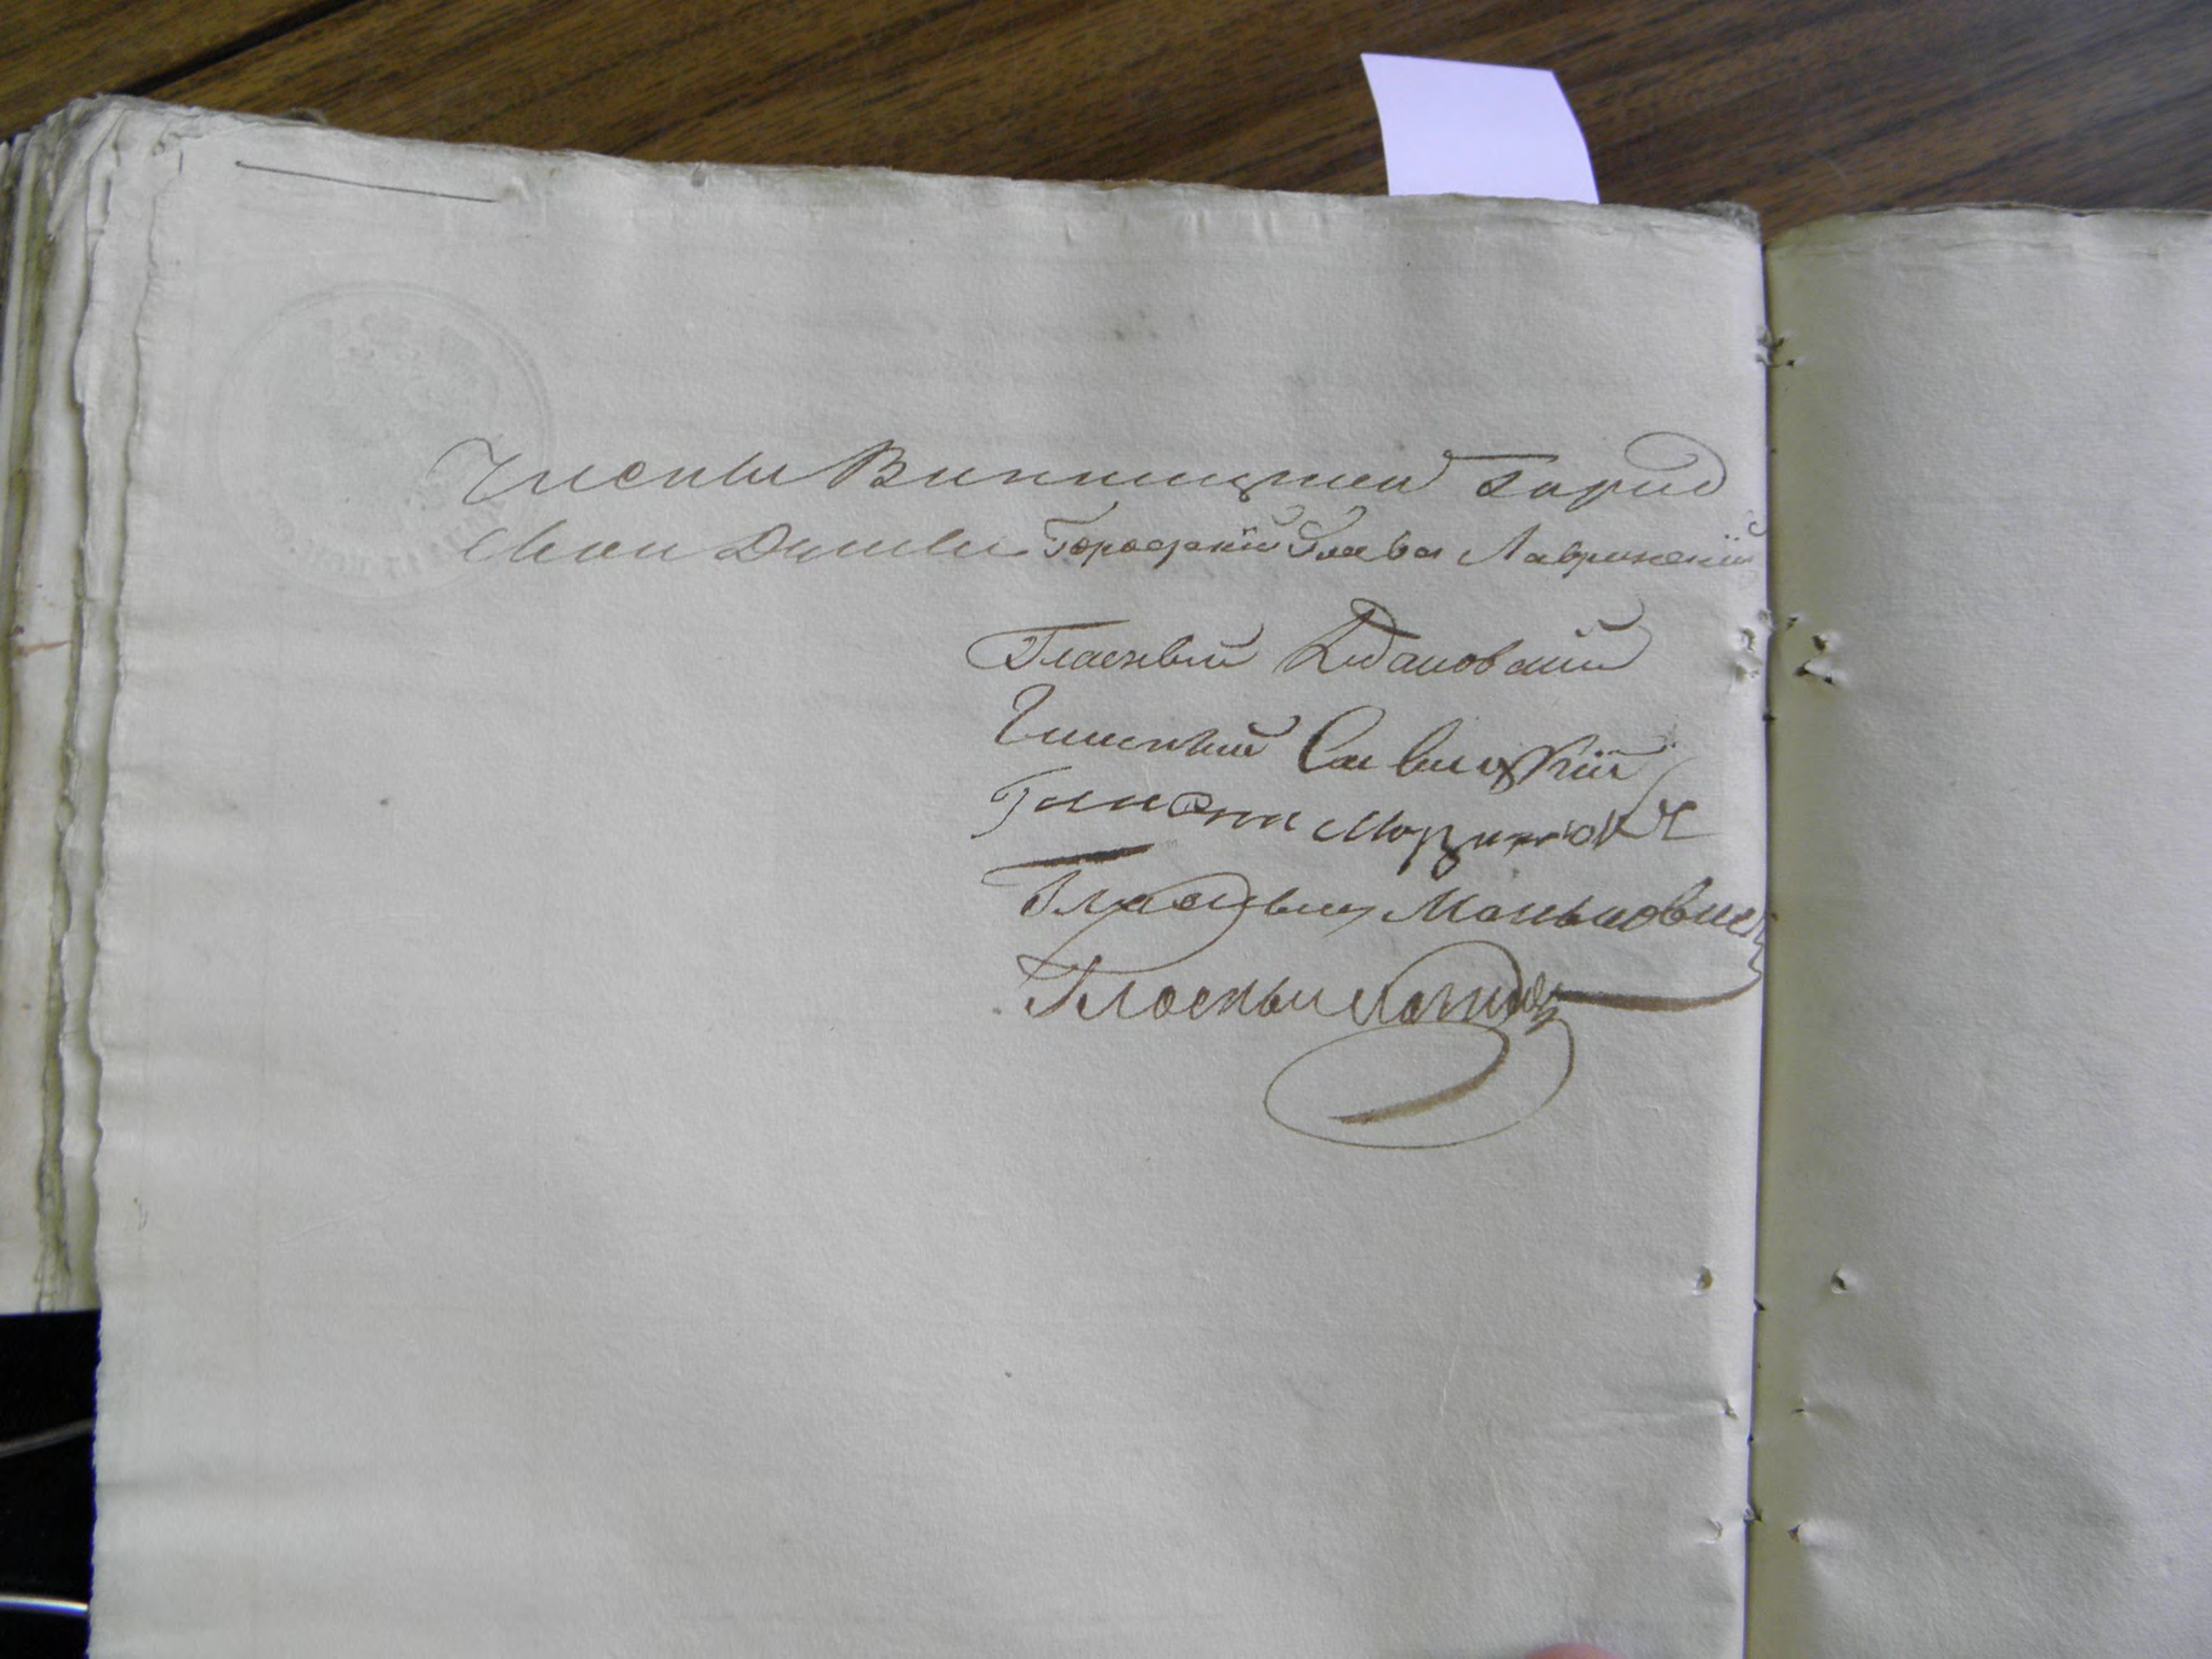 Члены Винницкой Город
ской Думы Городской Глава Лавринскій
Гласный Ждановскій
Гласный Савицкій
Гласны
Гласный Маньковскі
Гласны